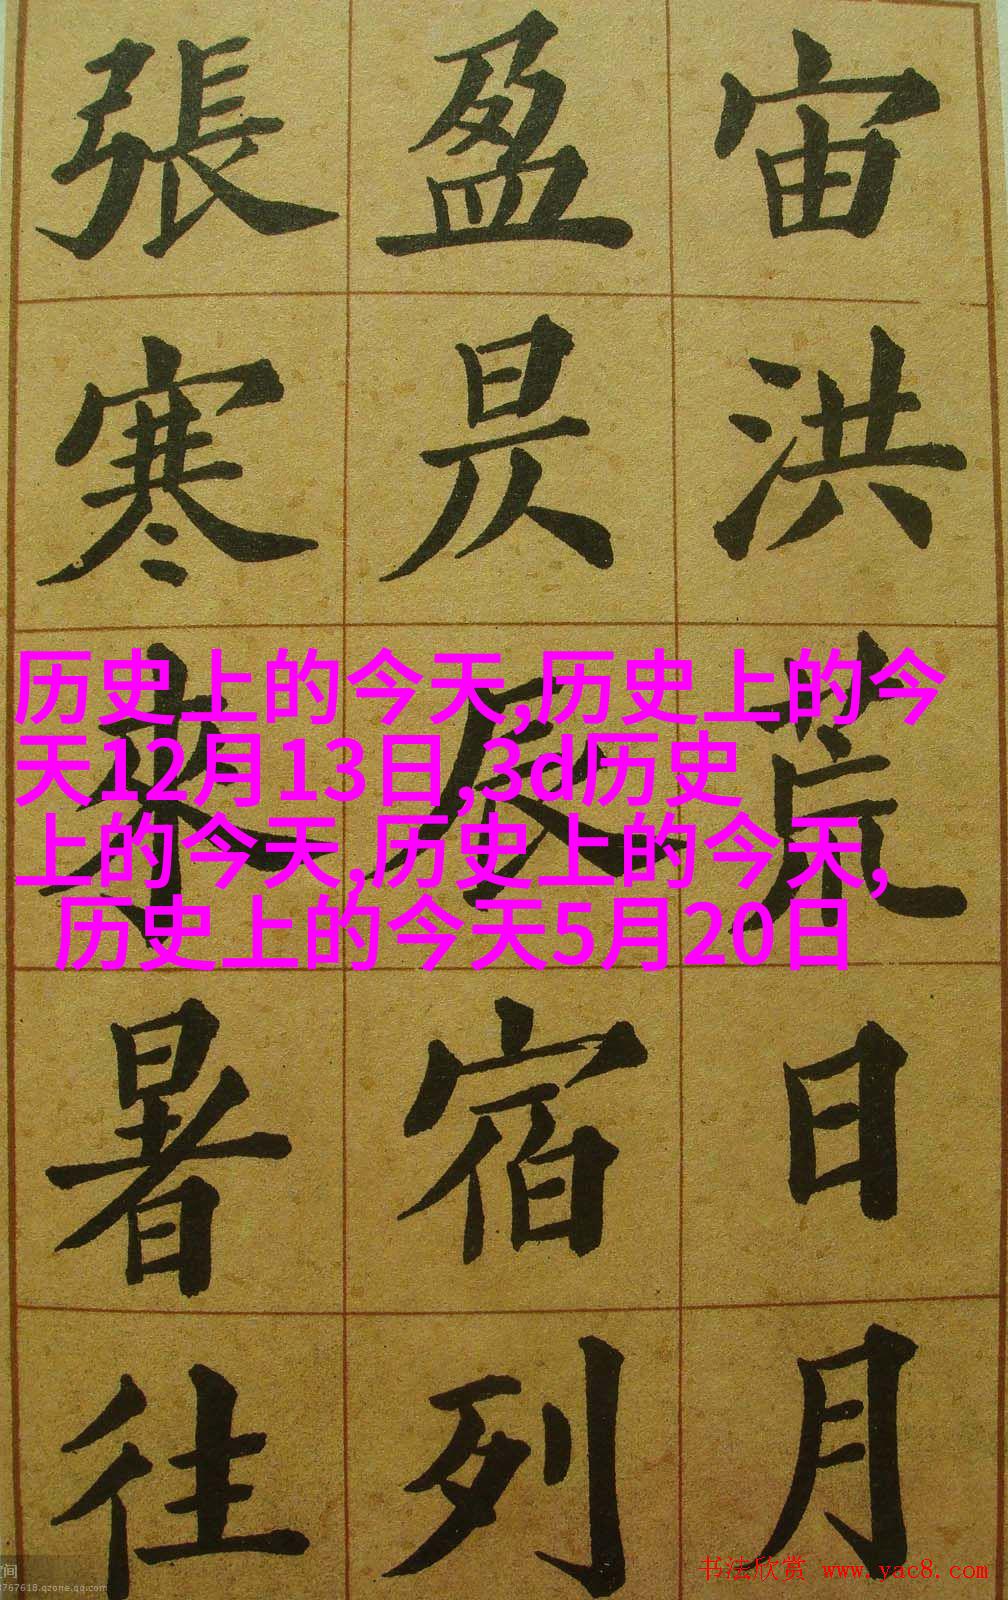 宙洪荒日月
盈昃辰宿列
張寒來暑往
历史上的今天,历史上的今
天12月13日,3d历史
上的今天,历史上的今天,
历史上的今天5月20日
书法欣赏 www.yac8.com
767618.qzone.qq.com